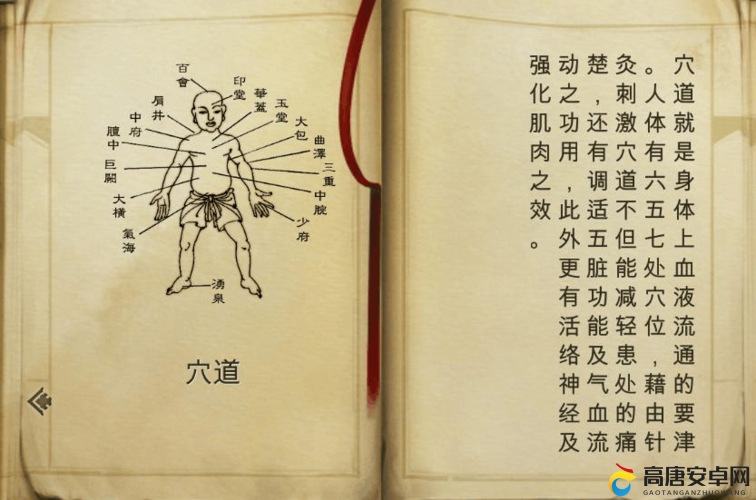 百會
印堂
華蓋
玉堂
大包
曲澤
三重
中脘
少府
肩井
中府
膻中
巨闕
大橫
氣海
湧泉
穴道
穴道就是身体上血液流通的要津
。人体有六五七处穴位，藉由针
灸刺激穴道不但能减轻患处的痛
楚，还有调适五脏功能及气血流
动之功用，此外更有活络神经及
强化肌肉之效。
高唐安卓网
GAOTANGANZHUOWANG